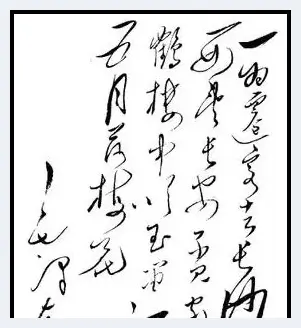 一为迁客去长沙
西望长安不见家
鹤楼中吹玉笛
五月落梅花
毛泽东